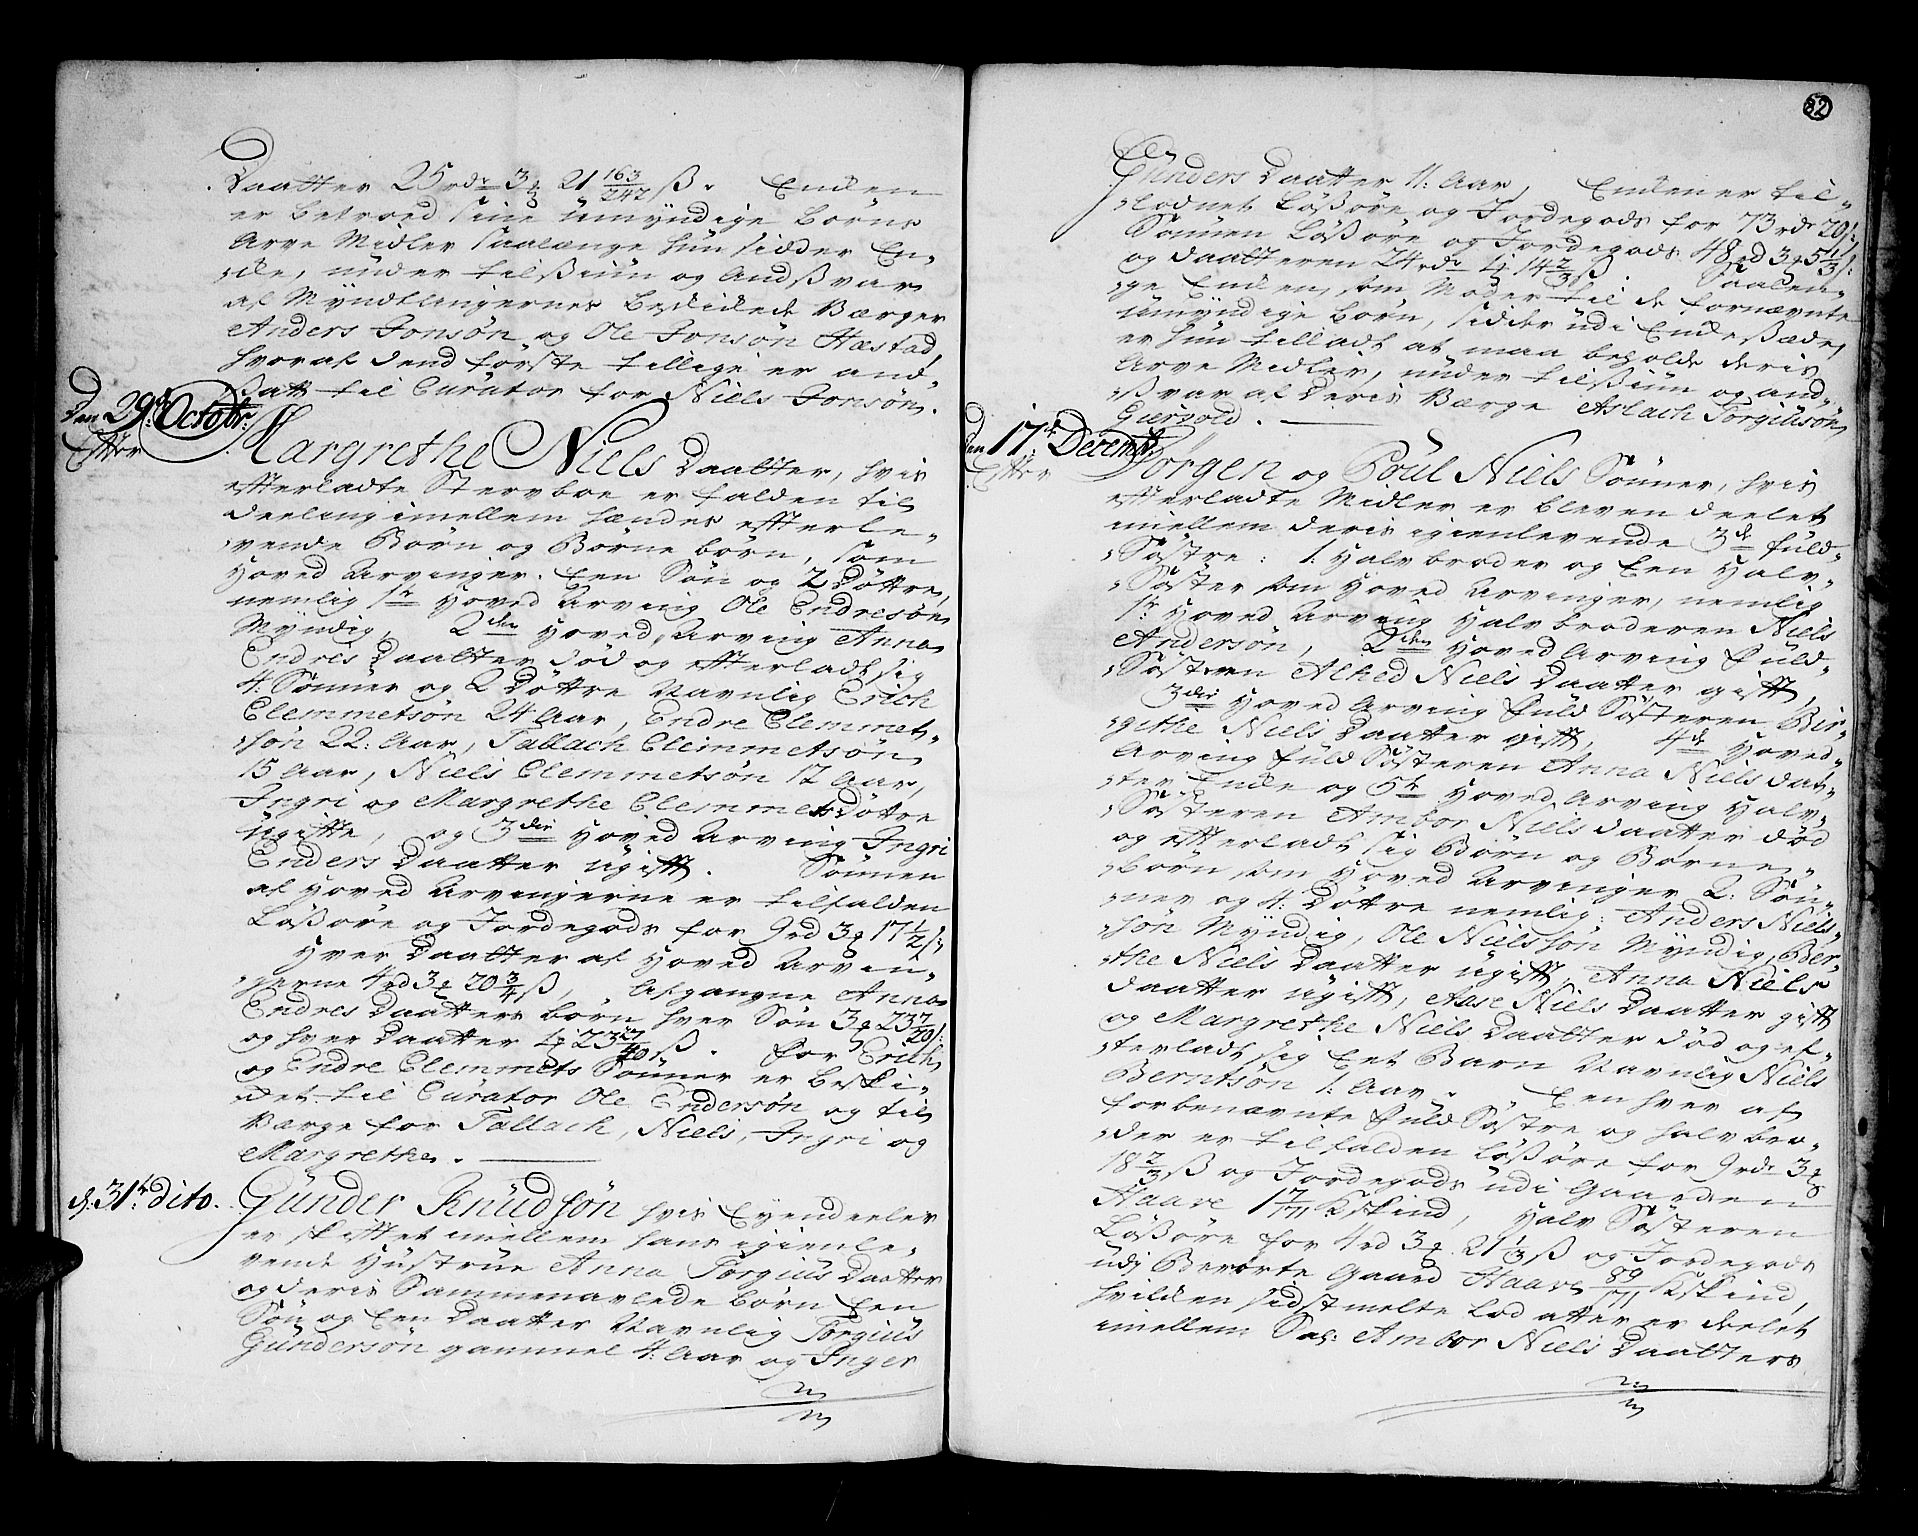 Daatter 25 rdr 3 ɱ 21 163/242 ß. Enken
er betroed sine umyndige Børns
Arve Midler saalænge hun sidder En-
ke, under tilsiun og Andsvar
af Myndtlingernes beskikkede Værger
Anders Jonsøn og Ole Jonsøn Hæstad,
hvoraf dend første tillige er and-
satt til Curator for Niels Jonsøn.
Den 29de Octobr:
Effter
Margrethe Niels Daatter, hvis
efterladte Stervboe er falden til
deeling imellem hændes effterle-
vende Børn og Børne børn, som
Hoved Arvinger. Een Søn og 2 Døttre,
nemlig 1te Hoved Arving Ole Endresøn
Myndig, 2den Hoved Arving Anna
Endres Daatter død og effterladt sig
4: Sønner og 2 Døttre Navnlig Erich
Clemmetsøn 24 Aar, Endre Clemmet-
søn 22: Aar, Tallach Clemmetsøn
15 Aar, Niels Clemmetsøn 12 Aar,
Ingri og Margrethe Clemmets Døttre
ugifte, og 3die Hoved Arving Ingri
Enders Daatter ugift. Sønnen
af Hoved Arvingerne er tilfalden
Løsøre og Jordegods for 9 rd 3 ɱ 17 1/2 ß
Hver Daatter af Hoved Arvin-
gerne 4 rd 3 ɱ 20 3/4 ß, Afgangne Anna
Endres Daatters børn hver Søn 3 ɱ 23 7/20 ß:
og hver Daatter 1 ɱ 23 27/40 ß. for Erich
og Endre Clemmets Sønner er beski-
ket til Curator Ole Endersøn og til
Værge for Tallach, Niels, Ingri og
Margrethe.
d. 31te dito.
Gunder Knudsøn hvis Eyendeeler
er skifftet imellem hans igienle-
vende Hustrue Anna Torgius Daatter
og deris Sammenavlede børn Een
Søn og Een Daatter Navnlig Torgius
Gundersøn gammel 4: Aar og Inger
82
Gunders Daatter 11: Aar, Enken er til-
lodnet Løsøre og Jordegods for 73 rdr 20 ß:
Sønnen Løsøre og Jordegods 48 rd 3 ɱ 5 1/3 ß:
og daatteren 24 rdr 1 ɱ 14 2/3 ß. Saalen-
ge Enken, som Moder til de fornævnte
umyndige Børn, sidder udi Enkesæde,
er hun tilladt at maa beholde deris
Arve Midler, under tilsiun og and-
svar af deris Værge Aslach Torgiusøn
Giervold.
Den 17de Decembr:
Effter
Jørgen og Poul Niels Sønner, hvis
efterladte Midler er bleven deelet
imellem deris igienlevende 3de fuld-
Søstre: 1: Halvbroder og Een Halv-
Søster som Hoved Arvinger, nemlig
1te Hoved Arving Halvbroderen Niels
Andersøn, 2den Hoved Arving fuld-
Søsteren Alhed Niels Daatter gifft,
3die Hoved Arving fuld Søsteren Bir-
githe Niels Daatter gifft, 4de Hoved
Arving fuld Søsteren Anna Niels Dat-
ter Enke og 5te Hoved Arving Halv-
Søsteren Ambor Niels Daatter død
og effterladt sig Børn og Børne-
børn som Hoved Arvinger 2: Søn-
ner og 4: Døttre nemlig: Anders Niels-
søn Myndig, Ole Nielssøn Myndig, Ber-
the Niels Daatter ugifft, Anna Niels
Daatter ugifft, Aase Niels Daatter gifft
og Margrethe Niels Daatter død og ef-
terladt sig Eet Barn Navnlig Niels
Berntsøn 1: Aar. Een hver af
forbenævnte fuld Søstre og halv bro-
der er tilfalden Løsøre for 9 rdr 3 ɱ
18 2/3 ß og Jordegods udi Gaarden
Haave Kskind, Halv Søsteren
Løsøre for 4 rd 3 ɱ 21 1/3 ß og Jordegods
udj Berørte Gaard Haave Kskind,
hvilken sidst melte Lod atter er deelet
imellem Sal: Ambor Niels Daatters